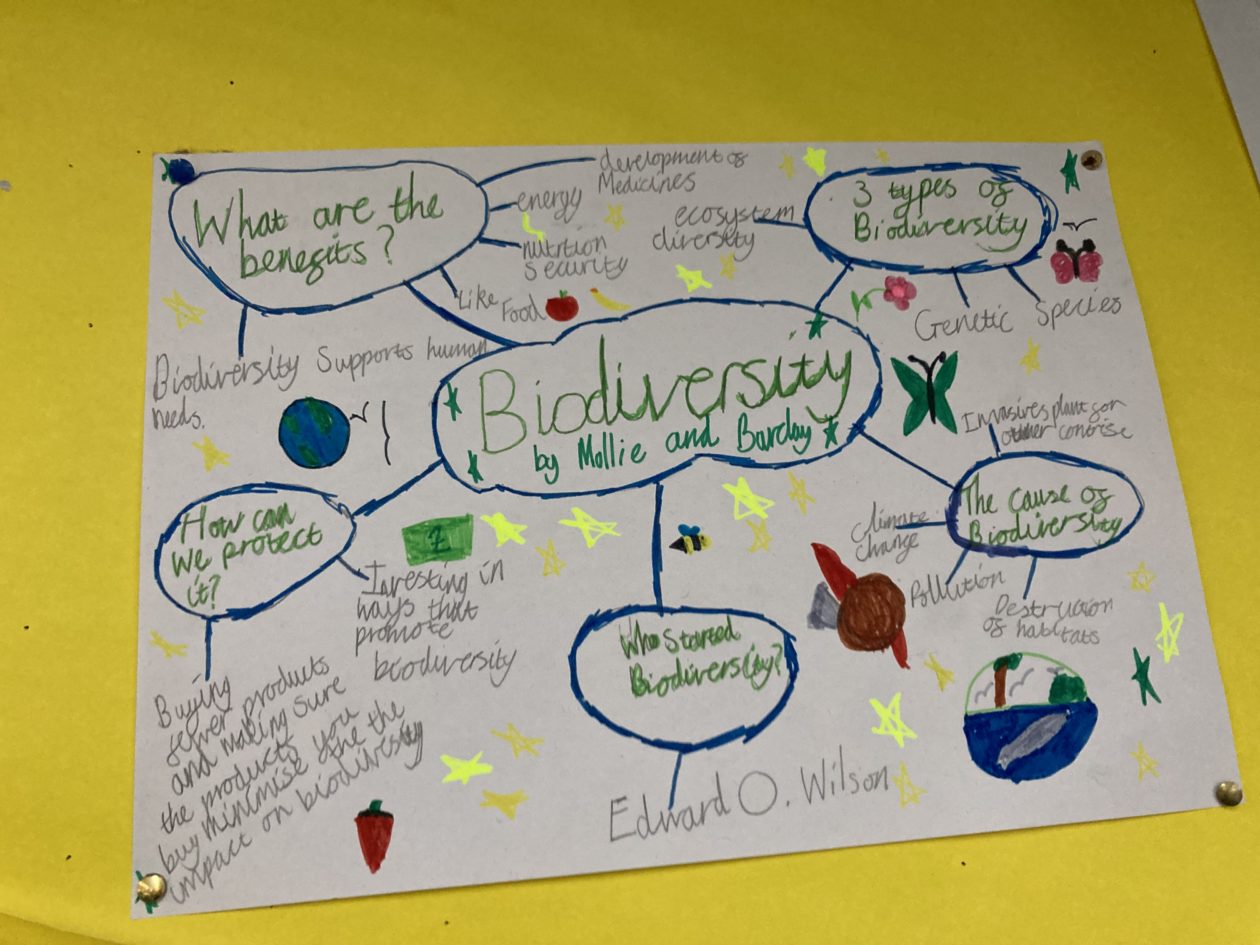 What are the
benefits?
development of
Medicines
energy
nutrition
security
Like Food
Biodiversity Supports human
needs.
3 types of
Biodiversity
ecosystem
diversity
Genetic
Species
Biodiversity
by Mollie and Barclay
How can
we protect
it?
Investing in
ways that
promote
biodiversity
Buying
fewer products
and making sure
the products you
buy minimise the the
impact on biodiversity
Who started
Biodiversity?
Edward O. Wilson
The cause of
Biodiversity
Invasives plant
climate
change
Pollution
Destruction
of habitats